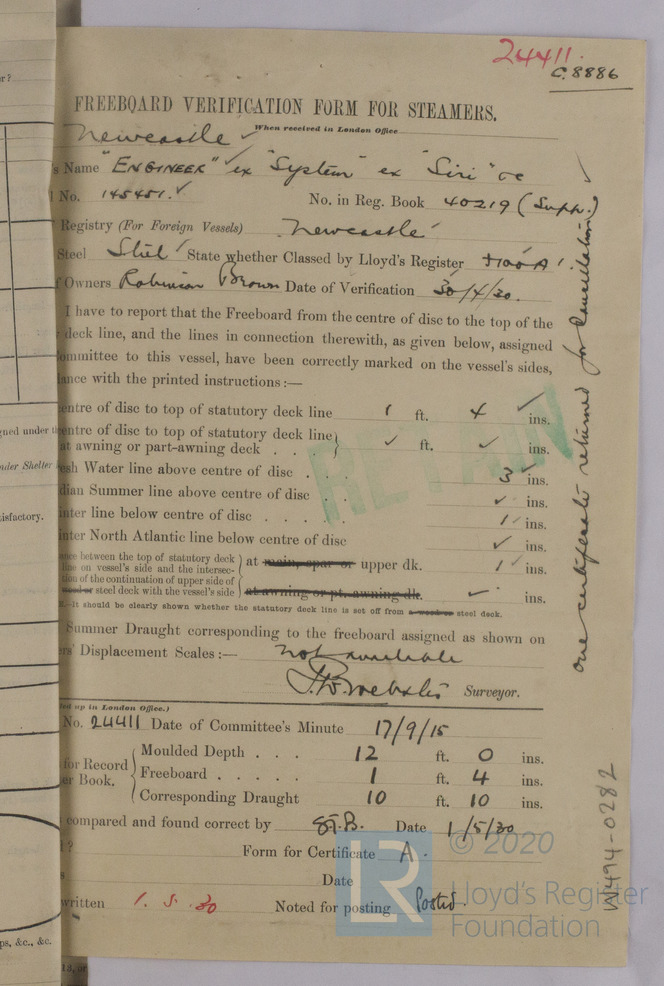 24411
C.8886
FREEBOARD VERIFICATION FORM FOR STEAMERS.
When received in London Office
Newcastle ✓
s Name "ENGINEER" ✓ ex "System" ex "Siri"
No. 145451. ✓ No. in Reg. Book 40219 (Supp.)
Registry (For Foreign Vessels) Newcastle
Steel Steel State whether Classed by Lloyd's Register +100A1
Owners Robinson Brown Date of Verification 30/4/30.
I have to report that the Freeboard from the centre of disc to the top of the
deck line, and the lines in connection therewith, as given below, assigned
ommittee to this vessel, have been correctly marked on the vessel's sides,
ance with the printed instructions:—
entre of disc to top of statutory deck line 1 ft. 4 ✓ ins.
entre of disc to top of statutory deck line
at awning or part-awning deck . . ✓ ft. ✓ ins.
esh Water line above centre of disc . . . 3 ✓ ins.
dian Summer line above centre of disc . . ✓ ins.
inter line below centre of disc . . . . 1 ✓ ins.
inter North Atlantic line below centre of disc ✓ ins.
ance between the top of statutory deck
line on vessel's side and the intersec-
tion of the continuation of upper side of
wood or steel deck with the vessel's side
at main, spar or upper dk. 1 ✓ ins.
at awning or pt. awning dk. ✓ ins.
.—It should be clearly shown whether the statutory deck line is set off from a wood or steel deck.
Summer Draught corresponding to the freeboard assigned as shown on
ers' Displacement Scales :— not available
J.W. Webster Surveyor.
RETAIN
led up in London Office.)
No. 24411 Date of Committee's Minute 17/9/15
for Record
er Book.
Moulded Depth . . . 12 ft. 0 ins.
Freeboard . . . . . 1 ft. 4 ins.
Corresponding Draught 10 ft. 10 ins.
compared and found correct by Date 1/5/30
? Form for Certificate A.
s Date
written 1.5.30 Noted for posting Posted.
one certificate returned for Cancellation ✓
W494-0282
© 2020
LR
Lloyd's Register
Foundation
r?
gned under t
nder Shelter
tisfactory.
ps, &c., &c.